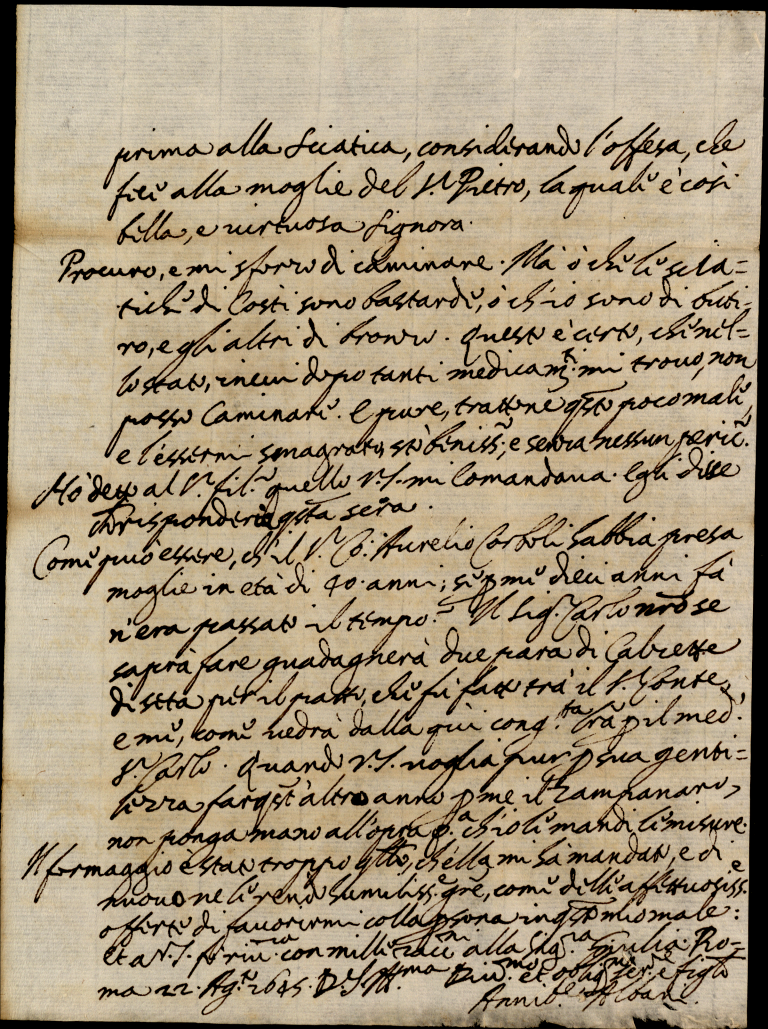 prima alla sciatica, considerando l'offesa, che
feci alla moglie del S.r Pietro, la quale è così
bella, e virtuosa signora.
Procuro, e mi sforzo di caminare. Mà ò che le scia=
tiche di Costì sono bastarde, ò ch'io sono di buti=
ro, e gli altri di bronzo. Questo è certo, che nel=
lo stato, in cui dopo tanti medicam.ti mi trovo, non
posso Caminare. E pure, trattone q̃sto poco male,
e l'essermi smagrato, stò beniss.o, e senza nessun peric.o
Hò detto al S.r fil.o quello V.S. mi Comandava. Egli disse
risponderà q̃sta sera.
Come può essere, ch'il S.r Co: Aurelio habbia presa
moglie in età di 40 anni; se p me dieci anni fà
n'era passato il tempo. Il Sig.r Carlo nr̃o se
saprà fare guadagnerà due para di Calzette
di seta per il patto, che fù fatto trà il S.r Conte,
e me, come vedrà dalla quì cong.ta lr̃a p il med.o
S.r Carlo. Quando V.S. voglia pur p sua genti=
lezza far q̃st'altro anno p me il Zampanaro,
non ponga mano all'opra p.a ch'io le mandi le misure.
Il formaggio è stato troppo q̃llo, ch'ella mi hà mandato, e di
nuovo ne le rendo humiliss.e gr̃e, come delle affettuosiss.e
offerte di favorirmi colla p̃sona in q̃sto mio male:
Et a V.S. con mille alla Sig.ra Giulia Ro=
ma 22. Ag.to 1645. D.V.S. Ill.ma Div.mo et oblig.mo ser.re e figlio
Annib.e Albani.